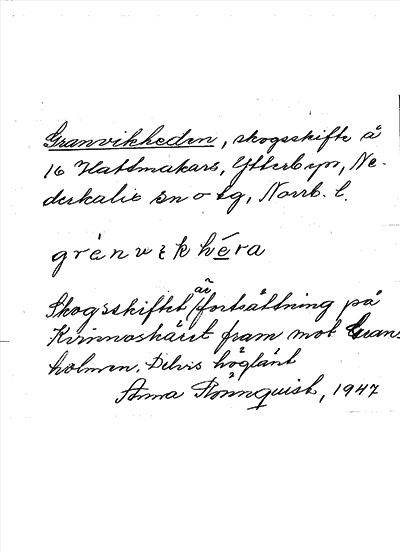 Granvikheden, skogsskifte å
16 Hattmakars, Ytterbyn, Ne-
derkalix sn o tg, Norrb. l.
grènvɩkhéra
Skogsskiftet är fortsättning på
Kvinnoskäret fram mot Gran-
holmen. Delvis höglänt
Anna Rönnquist, 1947